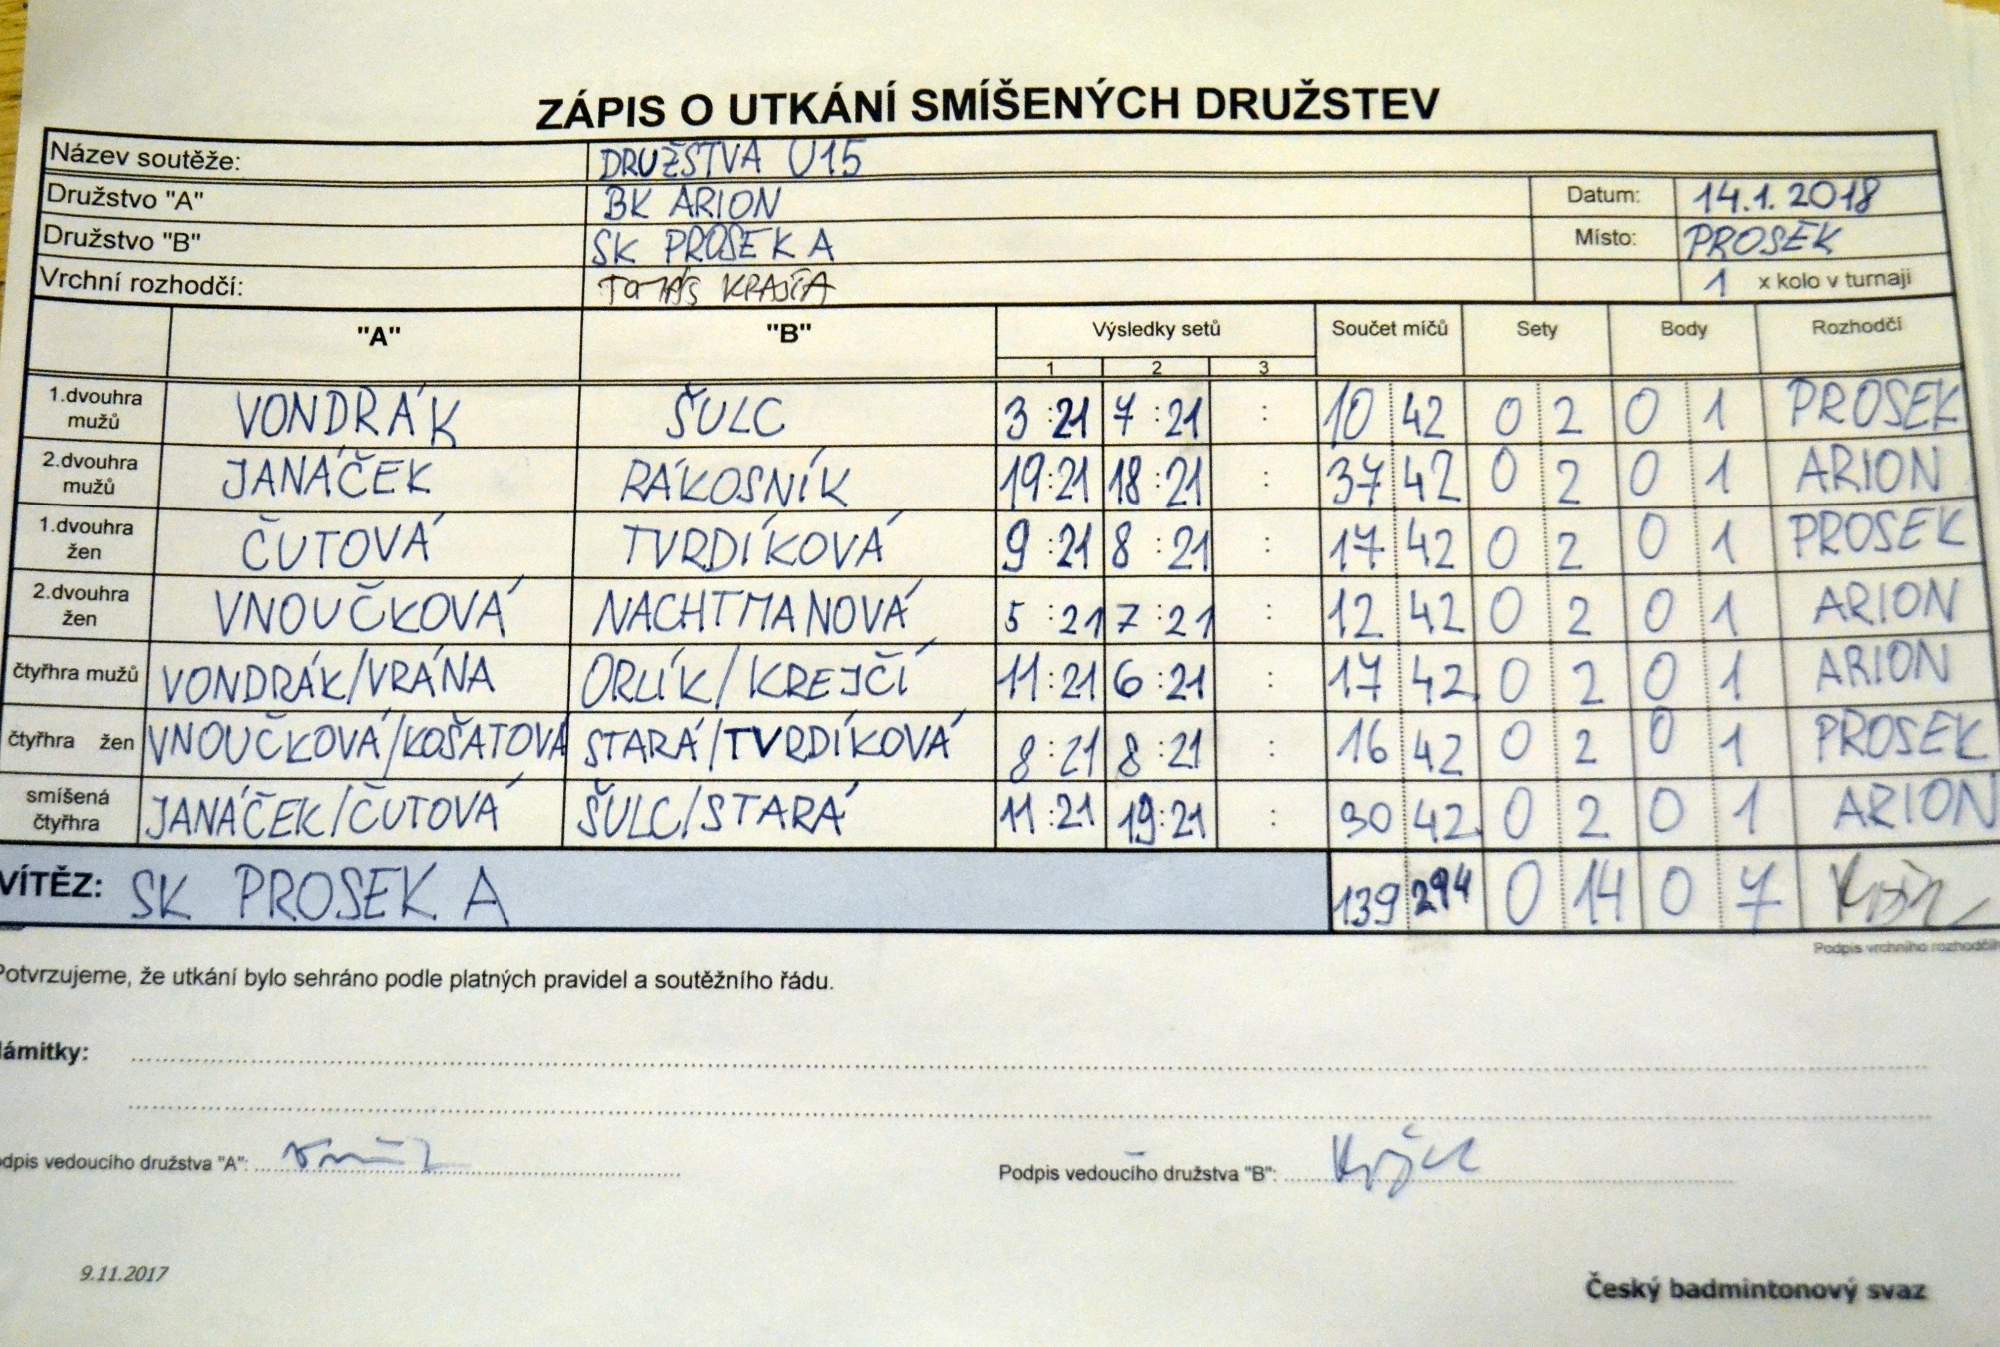 ZÁPIS O UTKÁNÍ SMÍŠENÝCH DRUŽSTEV
Název soutěže: DRUŽSTVA U15
Družstvo "A" BK ARION Datum: 14.1.2018
Družstvo "B" SK PROSEK A Místo: PROSEK
Vrchní rozhodčí: TOMÁŠ KRAJČA 1 x kolo v turnaji
"A" "B" Výsledky setů Součet míčů Sety Body Rozhodčí
1 2 3
1.dvouhra mužů VONDRÁK ŠULC 3:21 7:21 : 10 42 0 2 0 1 PROSEK
2.dvouhra mužů JANÁČEK RÁKOSNÍK 19:21 18:21 : 37 42 0 2 0 1 ARION
1.dvouhra žen ČUTOVÁ TVRDÍKOVÁ 9:21 8:21 : 17 42 0 2 0 1 PROSEK
2.dvouhra žen VNOUČKOVÁ NACHTMANOVÁ 5:21 7:21 : 12 42 0 2 0 1 ARION
čtyřhra mužů VONDRÁK/VRÁNA ORLÍK/KREJČÍ 11:21 6:21 : 17 42 0 2 0 1 ARION
čtyřhra žen VNOUČKOVÁ/KOŠATOVÁ STARÁ/TVRDÍKOVÁ 8:21 8:21 : 16 42 0 2 0 1 PROSEK
smíšená čtyřhra JANÁČEK/ČUTOVÁ ŠULC/STARÁ 11:21 19:21 : 30 42 0 2 0 1 ARION
VÍTĚZ: SK PROSEK A 139 294 0 14 0 7
Podpis vrchního rozhodčího
Potvrzujeme, že utkání bylo sehráno podle platných pravidel a soutěžního řádu.
ámitky:
dpis vedoucího družstva "A":
Podpis vedoucího družstva "B":
9.11.2017
Český badmintonový svaz